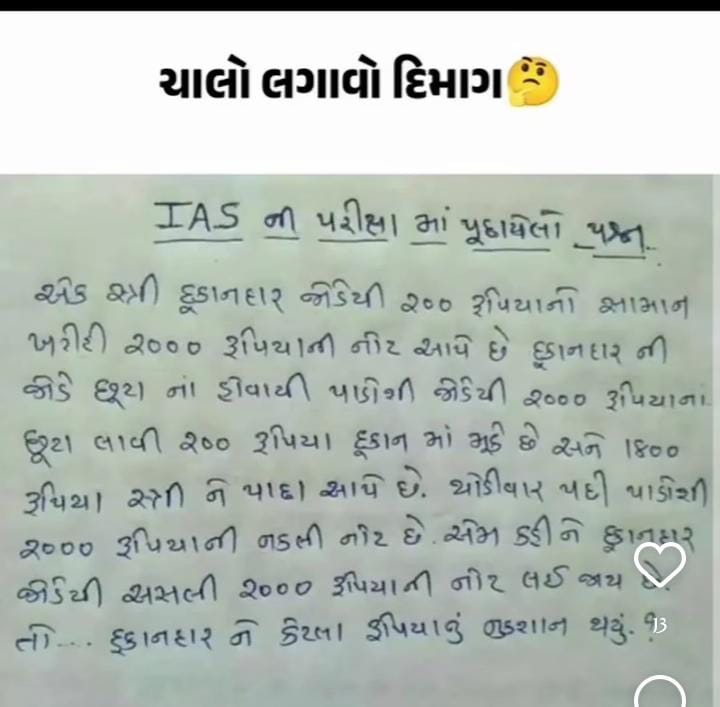 ચાલો લગાવો દિમાગ🤔
IAS ની પરીક્ષા માં પૂછાયેલો પ્રશ્ન.
એક સ્ત્રી દૂકાનદાર જોડેથી ૨૦૦ રૂપિયાનો સામાન
ખરીદી ૨૦૦૦ રૂપિયાની નોટ આપે છે દૂકાનદાર ની
જોડે છૂટા નાં હોવાથી પાડોશી જોડેથી ૨૦૦૦ રૂપિયાનાં
છૂટા લાવી ૨૦૦ રૂપિયા દૂકાન માં મૂકે છે અને ૧૪૦૦
રૂપિયા સ્ત્રી ને પાછા આપે છે. થોડીવાર પછી પાડોશી
૨૦૦૦ રૂપિયાની નકલી નોટ છે. એમ કહી ને દૂકાનદાર
જોડેથી અસલી ૨૦૦૦ રૂપિયાની નોટ લઈ જાય છે.
તો.... દૂકાનદાર ને કેટલા રૂપિયાનું નુકશાન થયું. ?
13